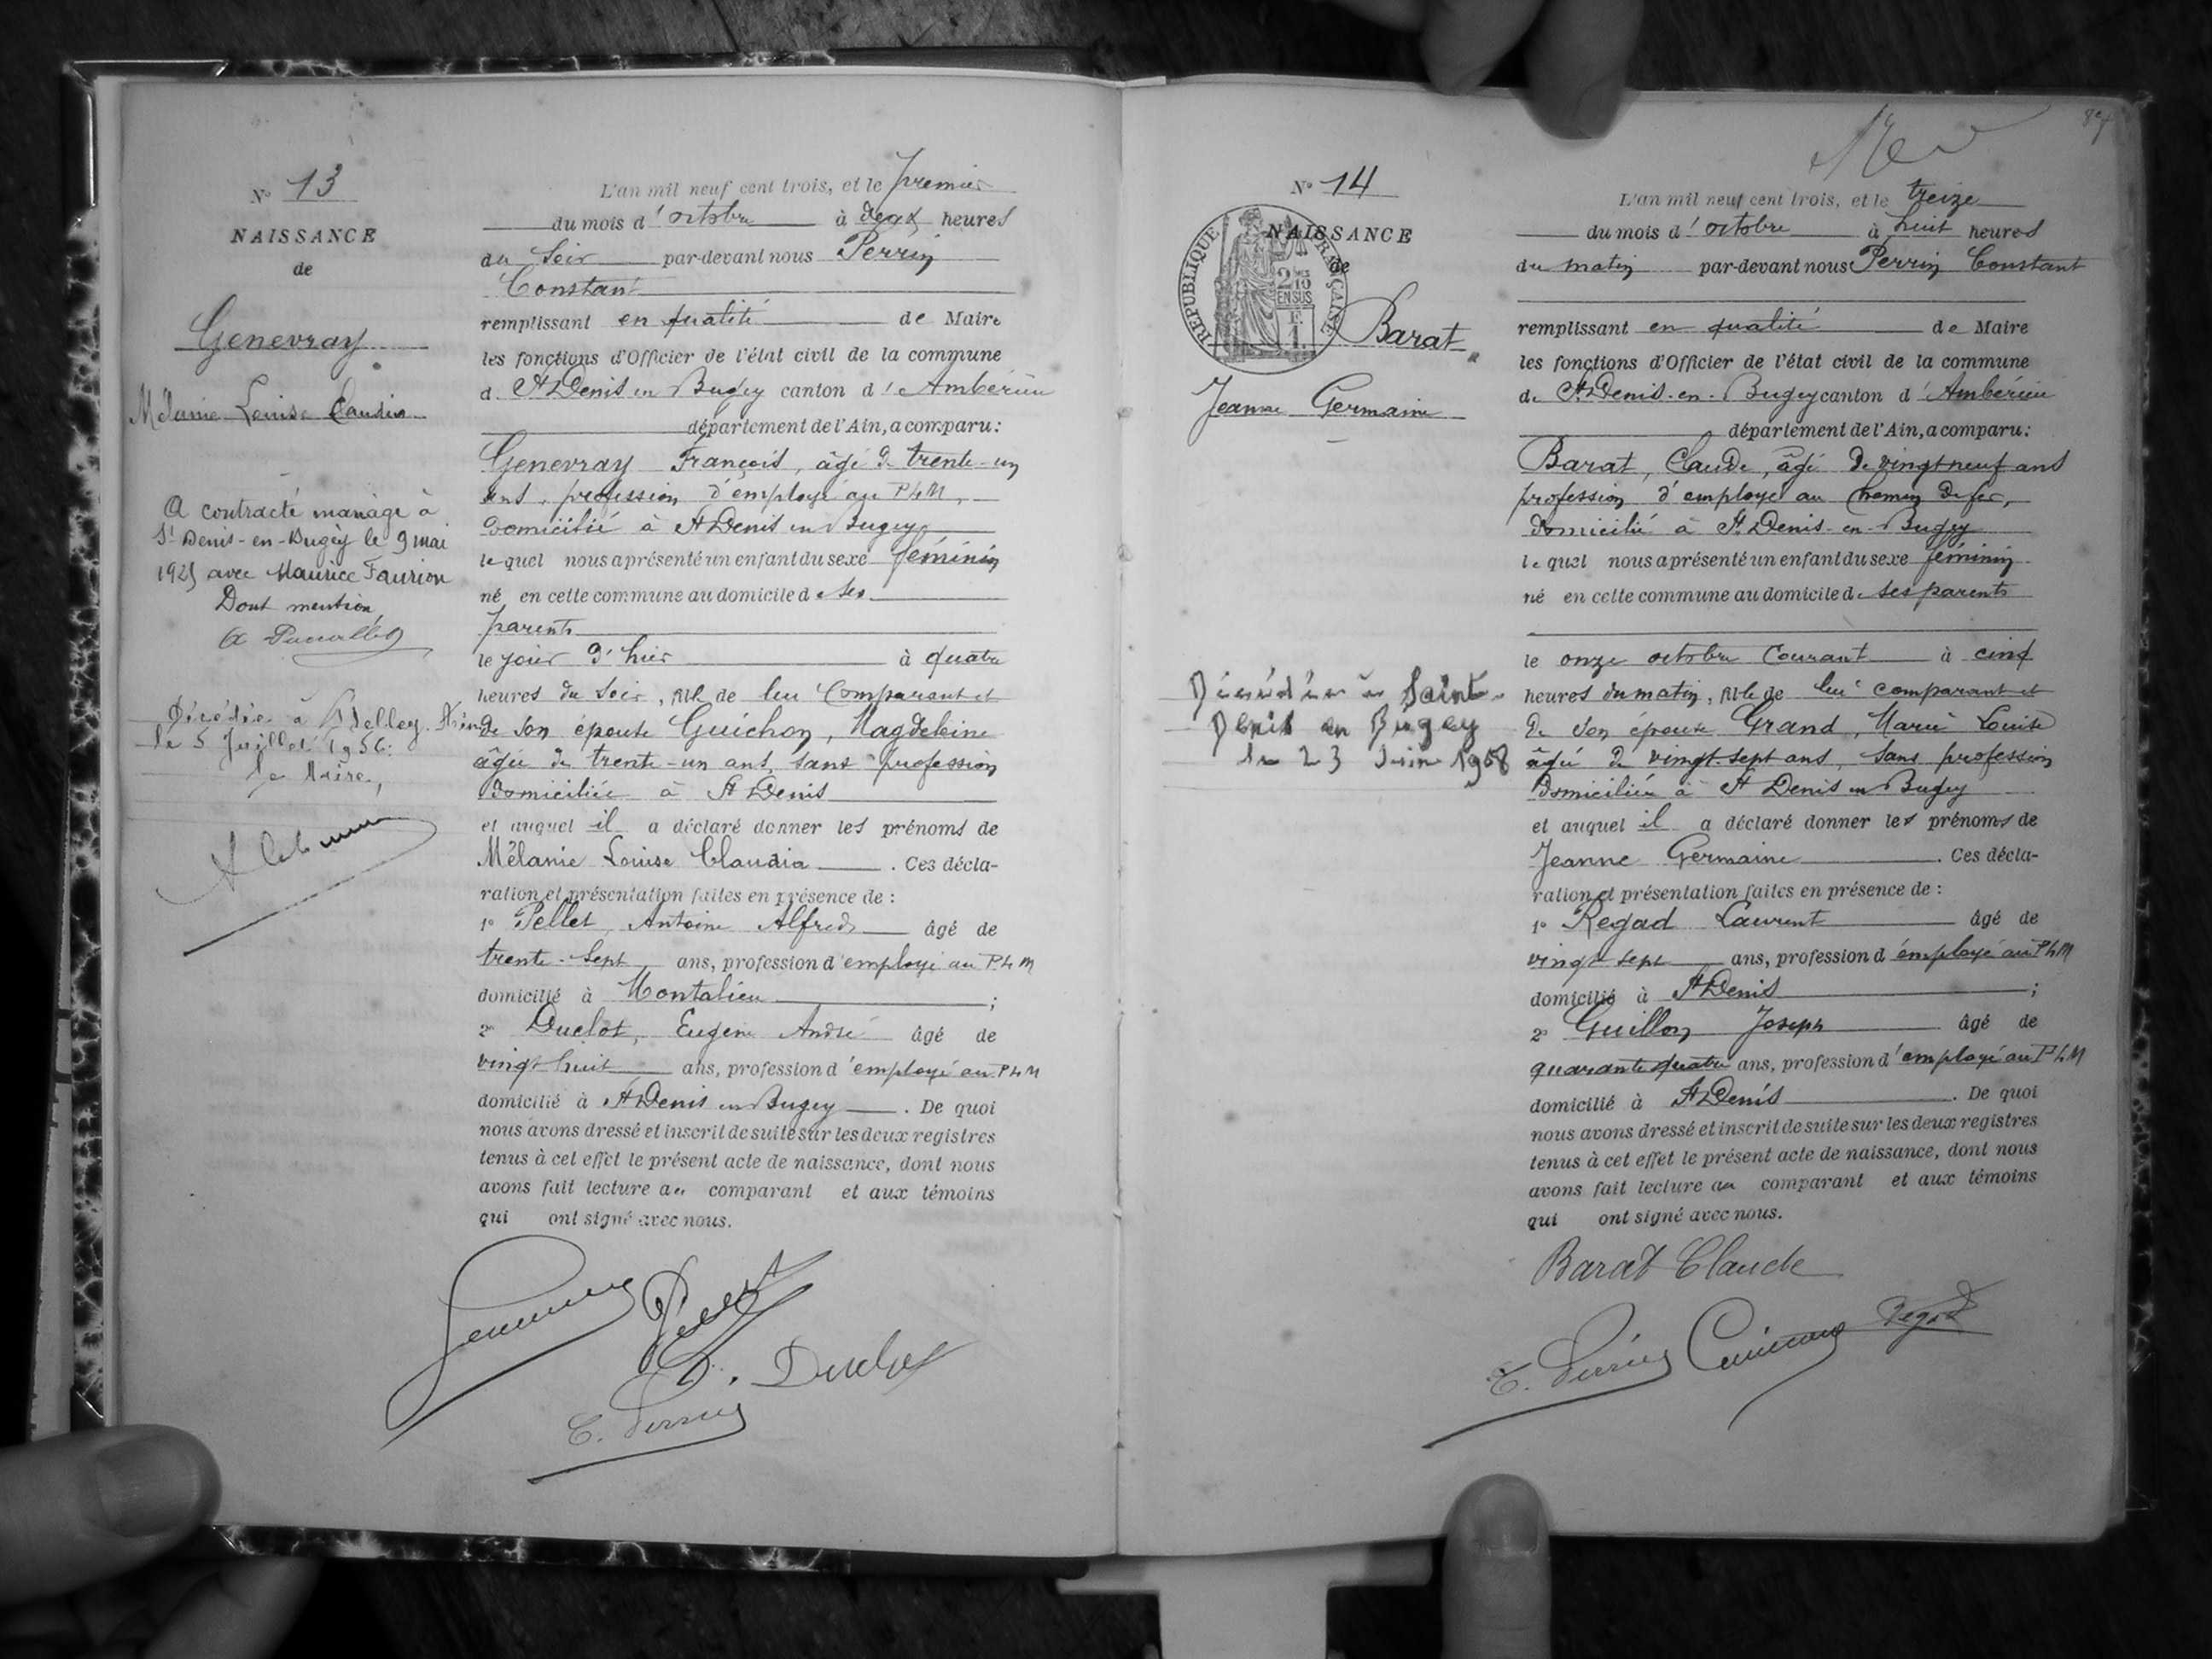 N° 13
NAISSANCE
de
Genevray
Mélanie Louise Claudia
A contracté mariage à
St Denis-en-Bugey le 9 mai
1925 avec Maurice Faurion
Dont mention
Décédée à Belley Ain
le 5 Juillet 1956.
le Maire,
L'an mil neuf cent trois, et le premier
du mois d'octobre à deux heures
du soir par-devant nous Perrin
Constant
remplissant en qualité de Maire
les fonctions d'Officier de l'état civil de la commune
d. St Denis en Bugey canton d'Ambérieu
département de l'Ain, a comparu :
Genevray François, âgé de trente-un
ans, profession d'employé au PLM,
domicilié à St Denis en Bugey
lequel nous a présenté un enfant du sexe féminin
né en cette commune au domicile de ses
parents
le jour d'hier à quatre
heures du soir, fille de lui comparant et
de son épouse Guichon, Magdeleine
âgée de trente-un ans, sans profession
domiciliée à St Denis
et auquel il a déclaré donner les prénoms de
Mélanie Louise Claudia. Ces décla-
ration et présentation faites en présence de :
1° Pellet, Antoine Alfred âgé de
trente-sept ans, profession d'employé au PLM
domicilié à Montalieu ;
2° Duclot, Eugène André âgé de
vingt huit ans, profession d'employé au PLM
domicilié à St Denis en Bugey. De quoi
nous avons dressé et inscrit de suite sur les deux registres
tenus à cet effet le présent acte de naissance, dont nous
avons fait lecture au comparant et aux témoins
qui ont signé avec nous.
E. Duclot
C. Perrin
87
N° 14
NAISSANCE
de
RÉPUBLIQUE FRANÇAISE
2/10
EN SUS
Barat
Jeanne Germaine
Décédée à Saint-
Denis en Bugey
le 23 Juin 1968
L'an mil neuf cent trois, et le treize
du mois d'octobre à huit heures
du matin par-devant nous Perrin Constant
remplissant en qualité de Maire
les fonctions d'Officier de l'état civil de la commune
de St Denis-en-Bugey canton d'Ambérieu
département de l'Ain, a comparu :
Barat, Claude, âgé de vingt neuf ans
profession d'employé au chemin de fer,
domicilié à St Denis-en-Bugey
lequel nous a présenté un enfant du sexe féminin
né en cette commune au domicile de ses parents
le onze octobre courant à cinq
heures du matin, fille de lui comparant et
de son épouse Grand, Marie Louise
âgée de vingt-sept ans, sans profession
domiciliée à St Denis en Bugey
et auquel il a déclaré donner les prénoms de
Jeanne Germaine. Ces décla-
ration et présentation faites en présence de :
1° Regad Laurent âgé de
vingt sept ans, profession d'employé au PLM
domicilié à St Denis ;
2° Guillon Joseph âgé de
quarante quatre ans, profession d'employé au PLM
domicilié à St Denis. De quoi
nous avons dressé et inscrit de suite sur les deux registres
tenus à cet effet le présent acte de naissance, dont nous
avons fait lecture au comparant et aux témoins
qui ont signé avec nous.
Barat Claude
C. Perrin Regad